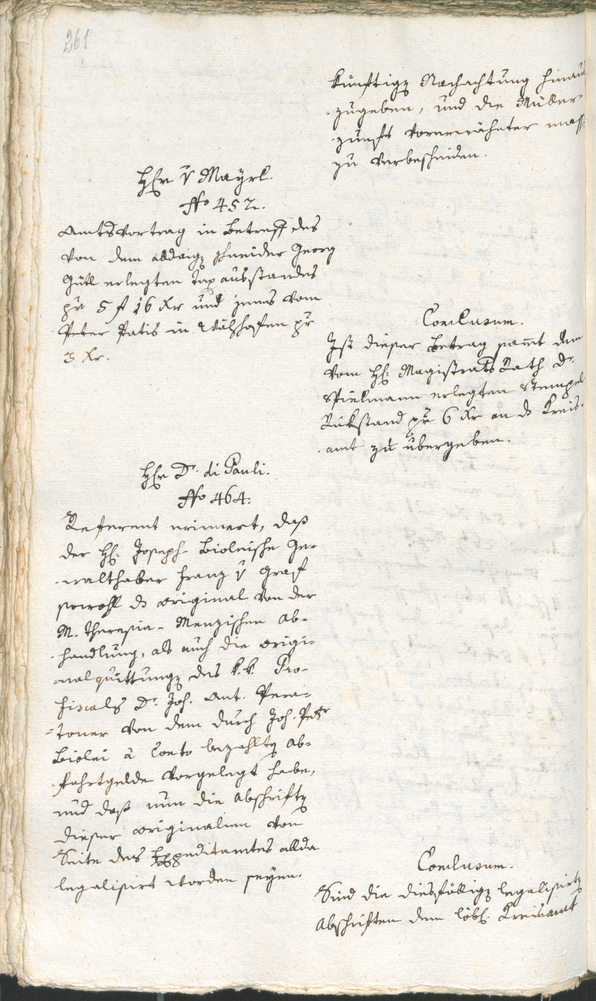 261
künftige Nachachtung hinaus
zugeben, und die Müller
zunft vorerwähnter mass
zu verbescheiden.
Hr v Mayrl.
No 452.
Amtsvortrag in Betreff des
von dem alldaig Schneider Georg
Gütl erlegten Taxausstandes
pr 5 f 16 Xr und jenes vom
Peter Patis in Wälzhofen pr
3 Xr.
Conclusum.
Ist dieser Betrag samt dem
vom H. Magistrats Rath Dr.
Spielmann erlegten Stempel
Rükstand pr 6 Xr an ds Kreis-
amt zu übergeben.
Hr Dr. di Pauli.
No 464.
Referent erinnert, daß
der H. Joseph Bioleische Ge-
walthaber Franz v Graf
sowohl ds original von der
M. Theresia Menzischen Ab-
handlung, als auch die origi-
nalquittung des k. k. Pro-
fiscals Dr. Joh. Ant. Pera-
toner von dem durch Joh. Petr
Biolei à Conto bezahlte Ab-
fahrtgelde vorgelegt habe,
und daß nun die Abschrifte
dieser originalien von
Seite des Expeditamtes allda
legalisirt worden seyen.
Conclusum.
Sind die diesfällige legalisirte
Abschriften dem löbl. Kreisamt